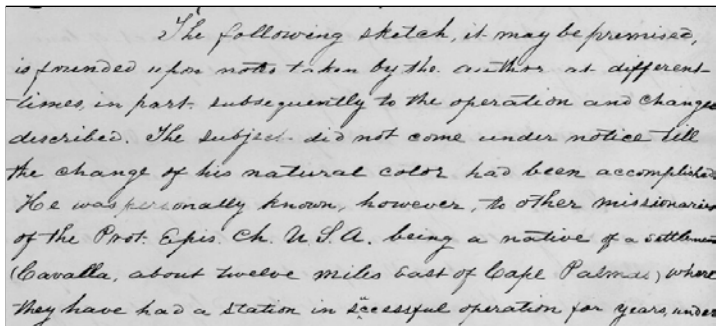 The following sketch, it may be premised,
is founded upon notes taken by the author at different
times, in part subsequently to the operation and change
described. The subject did not come under notice till
the change of his natural color had been accomplished.
He was personally known, however, to other missionaries
of the Prot. Epis. Ch. U.S.A. being a native of a settlement
(Cavalla, about twelve miles East of Cape Palmas) where
they have had a station in successful operation for years, under